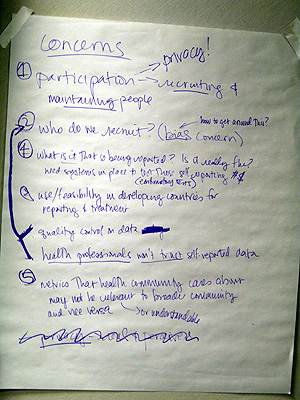 concerns
privacy!
① participation → recruiting &
maintaining people
② who do we recruit? (bias concern)
how to get around this?
④ what is it that is being reported? Is it really flu?
need systems in place to test those self reporting
(confirmatory tests)
③ use/feasibility in developing countries for
reporting & treatment
quality control in data
health professionals won't trust self-reported data
⑤ metrics that health community cares about
may not be relevant to broader community
and vice versa
or understandable